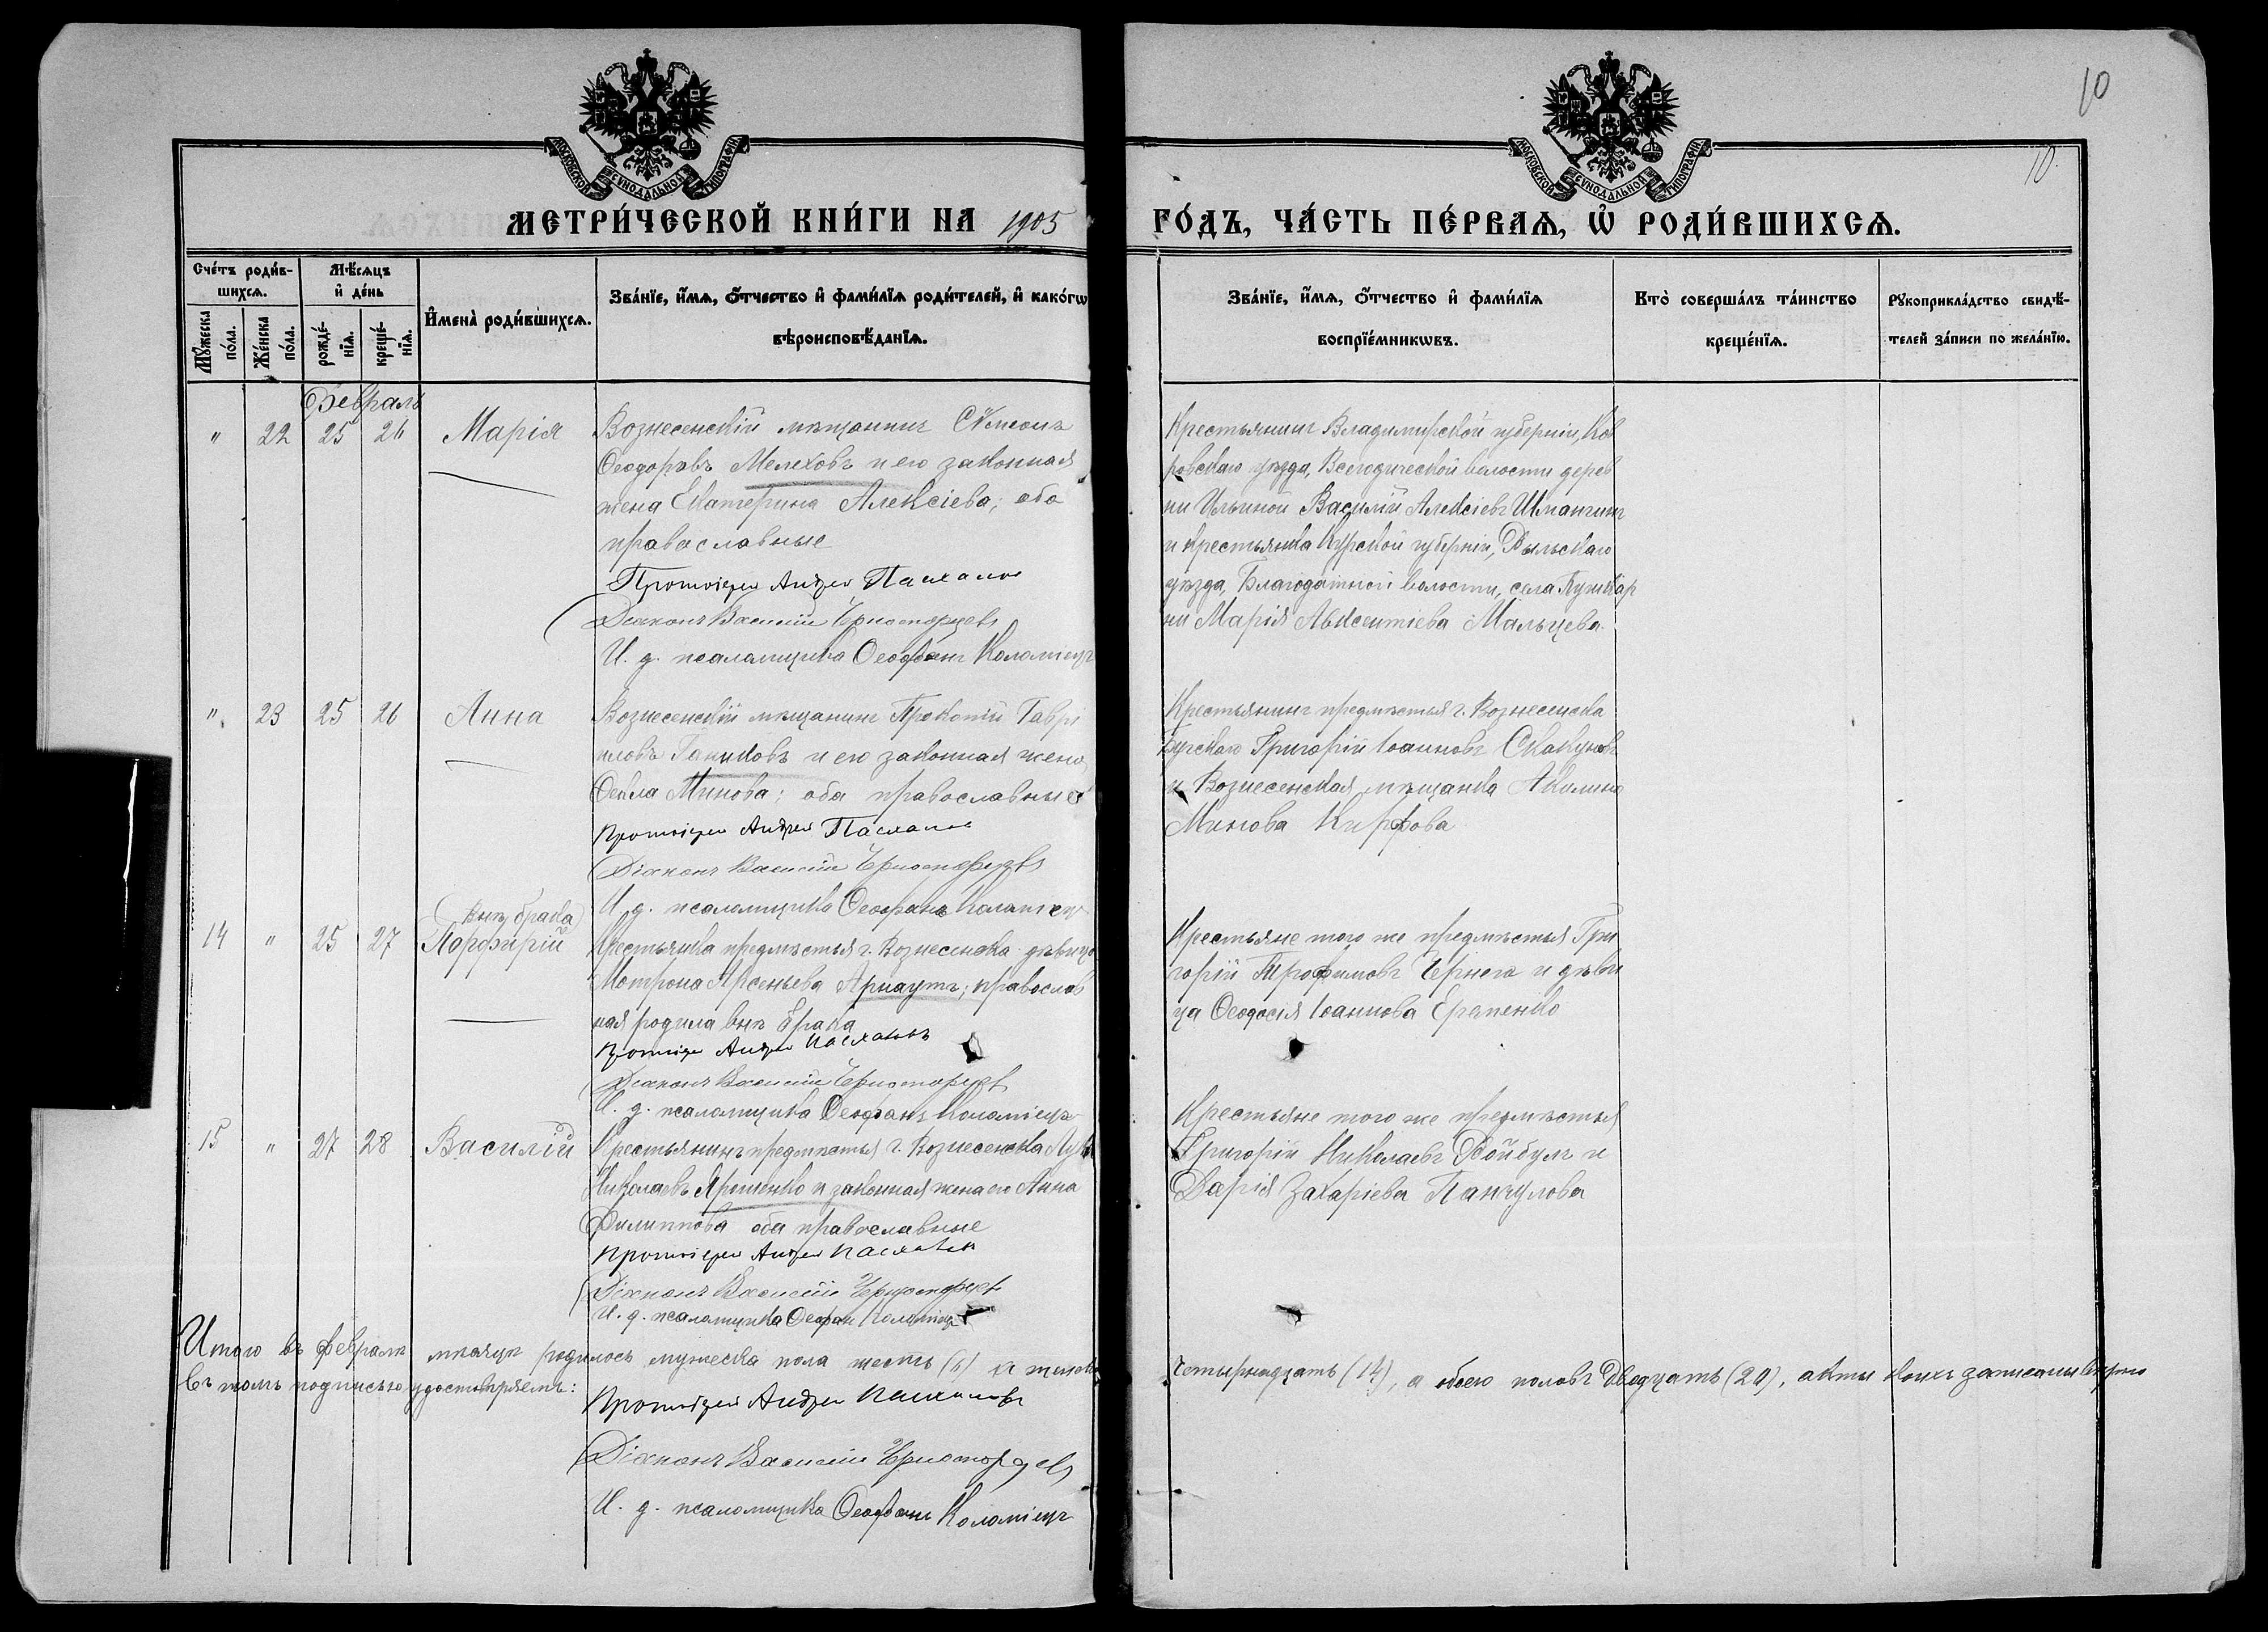 10
10.
МОСКОВСКОЙ СѴНОДАЛЬНОЙ ТИПОГРАФІИ
МОСКОВСКОЙ СѴНОДАЛЬНОЙ ТИПОГРАФІИ
МЕТРИ́ЧЕСКОЙ КНИ́ГИ НА 1905
ГО́ДЪ, ЧА́СТЬ ПЕ́РВАѦ, Ѡ҆ РОДИ́ВШИХСѦ.
Сче́тъ роди́в-
шихсѧ.
Мꙋ́жеска по́ла.
Же́нска по́ла.
Мѣ́сѧцъ
и҆ де́нь
рожде́-нїѧ.
креще́-нїѧ.
И҆мена̀ роди́вшихсѧ.
Зва́нїе, и҆́мѧ, ѻ҆́тчество и҆ фами́лїѧ роди́телей, и҆ како́гѡ
вѣроисповѣ́данїѧ.
Зва́нїе, и҆́мѧ, ѻ҆́тчество и҆ фами́лїѧ
воспрїе́мникѡвъ.
Кто̀ соверша́лъ та́инство
креще́нїѧ.
Рꙋкоприкла́дство свидѣ́-
телей за́писи по жела́нїю.
Февраль
" 22 25 26 Марія
Вознесенскій мѣщанинъ Сѵмеонъ
Ѳеодоровъ Мелеховъ и его законная
жена Екатерина Алексіева; оба
православные
Протоіерей Андрей Пасхаловъ
Діаконъ Василій Черноморцевъ
И. д. псаломщика Ѳеофанъ Коломіецъ
Крестьянинъ Владимирской губерніи, Ков
ровскаго уѣзда, Всегодической волости дерев
ни Ильиной Василій Алексіевъ Шмангинъ
и крестьянка Курской губерніи, Рыльскаго
уѣзда, Благодатной волости, села Пушкар
ни Марія Авксентіева Мальцева.
" 23 25 26 Анна
Вознесенскій мѣщанинъ Прокопій Гаврі
иловъ Ганиковъ и его законная жена
Ѳекла Минова; оба православные
Протоіерей Андрей Пасхаловъ
Діаконъ Василій Черноморцевъ
И. д. псаломщика Ѳеофанъ Коломіецъ
Крестьянинъ предмѣстья г. Вознесенска
Бугскаго Григорій Іоанновъ Скакуновъ
и Вознесенская мѣщанка Акилина
Минова Кирфова
(внѣ брака)
14 " 25 27 Порфирій
Крестьянка предмѣстья г. Вознесенска дѣвица
Мотрона Арсеньева Арнаутъ; православ
ная родила внѣ брака
Протоіерей Андрей Пасхаловъ
Діаконъ Василій Черноморцевъ
И. д. псаломщика Ѳеофанъ Коломіецъ
Крестьяне того же предмѣстья Гри
горій Трофимовъ Чернега и дѣви
ца Ѳеодосія Іоаннова Ерапенко
15 " 27 28 Василій
Крестьянинъ предмѣстья г. Вознесенска Лука
Николаевъ Ярошенко и законная жена его Анна
Филиппова оба православные
Протоіерей Андрей Пасхаловъ
Діаконъ Василій Черноморцевъ
И. д. псаломщика Ѳеофанъ Коломіецъ
Крестьяне того же предмѣстья
Григорій Николаевъ Войбулъ и
Дарія Захаріева Панчулова
Итого въ февралѣ мѣсяцѣ родилось мужеска пола шесть (6) а женска
четырнадцать (14), а обоего половъ двадцать (20), акты коихъ записаны вѣрно
въ томъ подписью удостовѣряемъ:
Протоіерей Андрей Пасхаловъ
Діаконъ Василій Черноморцевъ
И. д. псаломщика Ѳеофанъ Коломіецъ